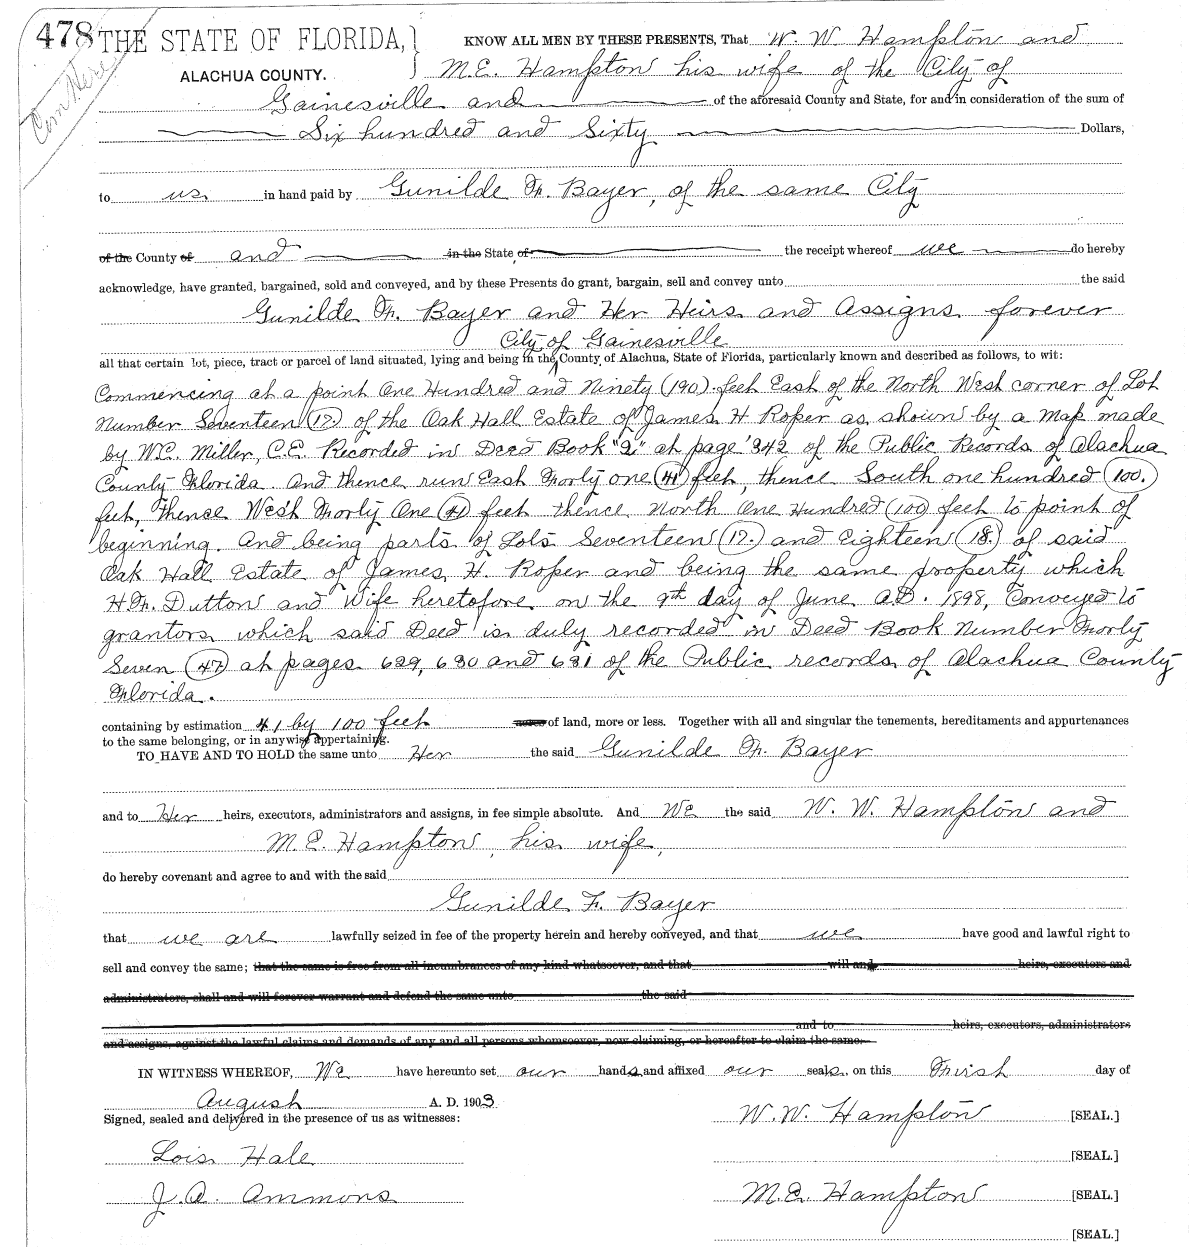 478 THE STATE OF FLORIDA, } KNOW ALL MEN BY THESE PRESENTS, That W. W. Hampton and
ALACHUA COUNTY. M.E. Hampton his wife of the City of
Gainesville and of the aforesaid County and State, for and in consideration of the sum of
Six hundred and Sixty Dollars,
to us in hand paid by Gunilde F. Bayer, of the same City
of the County of and in the State of the receipt whereof we do hereby
acknowledge, have granted, bargained, sold and conveyed, and by these Presents do grant, bargain, sell and convey unto the said
Gunilde F. Bayer and Her Heirs and Assigns forever
City of Gainesville
all that certain lot, piece, tract or parcel of land situated, lying and being in the County of Alachua, State of Florida, particularly known and described as follows, to wit:
Commencing at a point One Hundred and Ninety (190) feet East of the North West corner of Lot
Number Seventeen (17) of the Oak Hall Estate of James H Roper as shown by a Map made
by W.C. Miller, C.E. Recorded in Deed Book "2" at page 342 of the Public Records of Alachua
County Florida. And thence run East Forty one (41) feet, thence South one hundred (100.)
feet, thence West Forty One (41) feet thence North One Hundred (100) feet to point of
beginning. And being parts of Lots Seventeen (17.) and Eighteen (18.) of said
Oak Hall Estate of James H. Roper and being the same property which
H.F. Dutton and Wife heretofore on the 9th day of June A.D. 1898, Conveyed to
grantors which said Deed is duly recorded in Deed Book Number Forty
Seven (47) at pages 629, 630 and 631 of the Public records of Alachua County
Florida.
containing by estimation 41 by 100 feet acres of land, more or less. Together with all and singular the tenements, hereditaments and appurtenances
to the same belonging, or in anywise appertaining.
TO HAVE AND TO HOLD the same unto Her the said Gunilde F. Bayer
and to Her heirs, executors, administrators and assigns, in fee simple absolute. And We the said W. W. Hampton and
M. E. Hampton, his wife,
do hereby covenant and agree to and with the said
Gunilde F. Bayer
that we are lawfully seized in fee of the property herein and hereby conveyed, and that we have good and lawful right to
sell and convey the same; that the same is free from all incumbrances of any kind whatsoever, and that will and heirs, executors and
administrators, shall and will forever warrant and defend the same unto the said
and to heirs, executors, administrators
and assigns, against the lawful claims and demands of any and all persons whomsoever, now claiming, or hereafter to claim the same.
IN WITNESS WHEREOF, We have hereunto set our hands and affixed our seals, on this First day of
August A. D. 1903
Signed, sealed and delivered in the presence of us as witnesses: W. W. Hampton [SEAL.]
Lois Hale [SEAL.]
J. A. Ammons M. E. Hampton [SEAL.]
[SEAL.]